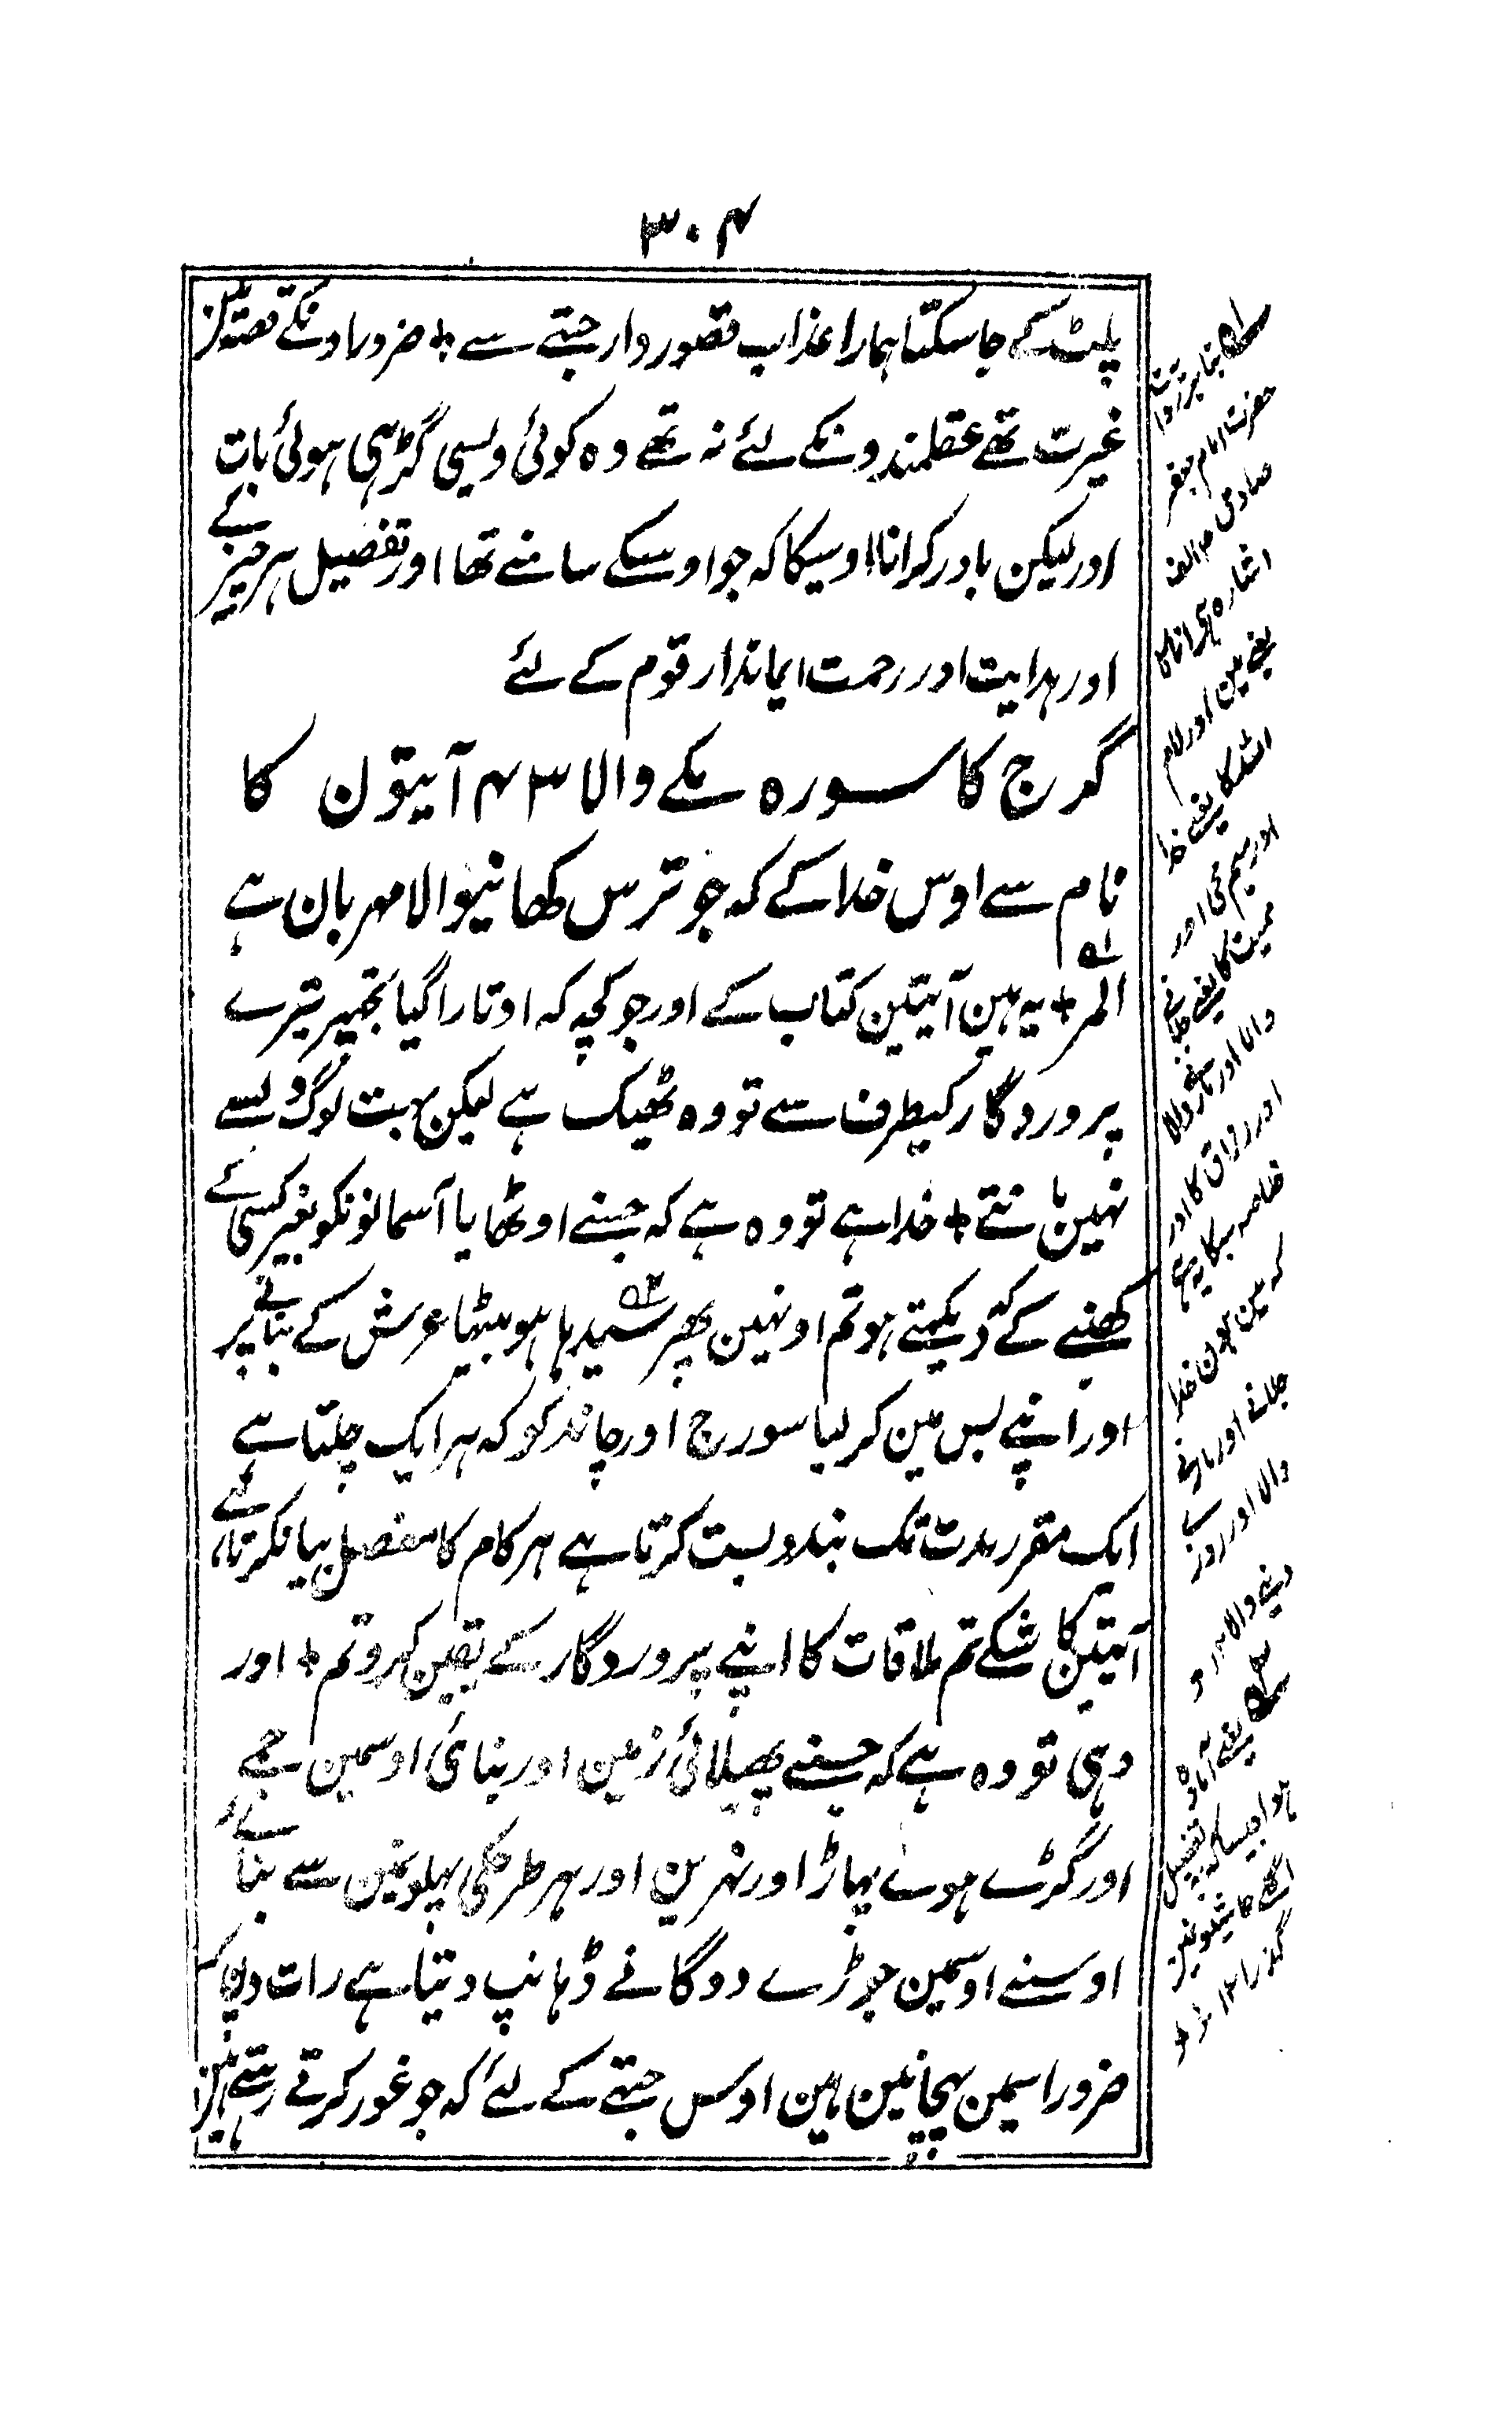 ۳۰۴
پلٹ کے جا سکتا ہمارا عذاب قصور وار جتھے سے + ضرور اونکے قصّے مین
غیرت تھے عقلمندونکے لئے نہ تھے وہ کوئی ویسی گڑہی ہوئی بات
اور لیکن باور کرانا اوسیکا کہ جو اوسکے سامنے تھا اور تفصیل ہر چیز کے
اور ہدایت اور رحمت ایماندار قوم کے لئے
گرج کا سورہ مکے والا ۴۳ آیتون کا
نام سے اوس خدا کے کہ جو ترس کھانیوالا مہربان ہے
المر + یہ ہین آیتین کتاب کے اور جو کچہ کہ اوتارا گیا تجھپر تیرے
پروردگار کیطرف سے تو وہ ٹھیک ہے لیکن بہت لوگ اوسے
نہین مانتے + خدا ہے تو وہ ہے کہ جسنے اوٹھایا آسمانونکو بغیر کسی
کھنبے کے دیکہتے ہو تم اونہین پھر سیدہا ہو بیٹھا عرش کے بنانے پر
اور اپنے بس مین کر لیا سورج اور چاند کو کہ ہر ایک چلتا ہے
ایک مقرر مدت تک بندوبست کرتا ہے ہر کام کا مفصل بیان کرتا ہے
آیتین کا شکے تم ملاقات کا اپنے پروردگار کے یقین کرو تم + اور
وہی تو وہ ہے کہ جسنے پھیلائی زمین اور بنائی اوسمین جمے
اور گڑے ہوئے پہاڑ اور نہرین اور ہر طرحکی پہلوئین سے بنائے
اوسنے اوسمین جوڑے دوگانے ڈہانپ دیتا ہے رات دن
ضرور اسمین پہچانین ہین اوس جتھے کے لئے کہ جو غور کرتے رہتے ہین
بنا بر روایت
حضرت امام جعفر
صادق ع الف
اشارہ ہی انا کا
یعنے مین اور لام
اللہ کا یعنے خدا
اور میم محی اور
ممیت کا یعنے جلانے
والا اور مارنے والا
اور را رزاق کا اور
خلاصہ سبکا یہ ہی
کہ مین ہون خدا
جلانے اور مارنے
والا اور روزی
دینے والا
یعنے آمادہ
ہوا جیسا کہ تفصیل
اگلے حاشیو نمین
گذرا ۱۲